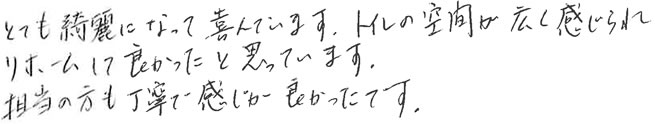 とても綺麗になって喜んでいます。トイレの空間が広く感じられて
リホームして良かったと思っています。
担当の方も丁寧で感じが良かったです。